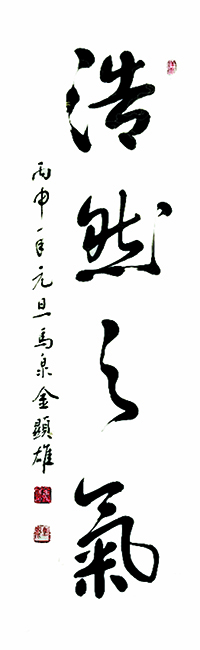 浩然之氣
丙申年元旦馬泉金顯雄